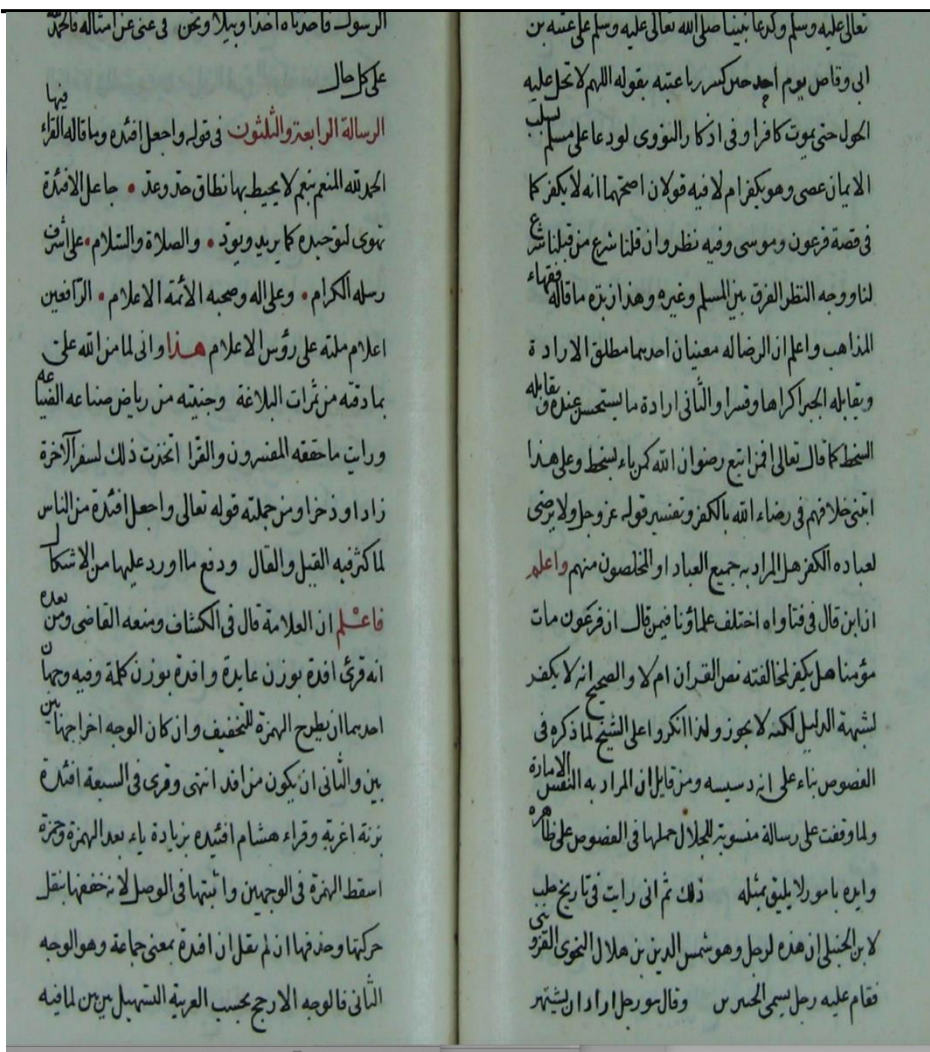 تعالى عليه وسلم وكدعا نبينا صلى الله تعالى عليه وسلم على عتبه بن
ابى وقاص يوم احد حين كسر رباعيته بقوله اللهم لا تحل عليه
الحول حتى يموت كافرا وفى اذكار النووى لو دعا على مسلم لسلب
الايمان عصى وهو يكفر ام لا فيه قولان اصحهما انه لا يكفر كما
فى قصة فرعون وموسى وفيه نظر وان قلنا شرع من قبلنا شرع
لنا ووجه النظر الفرق بين المسلم وغيره وهذا زبدة ما قاله فقهاء
المذاهب واعلم ان الرضا له معنيان احدهما مطلق الارادة
ويقابله الجبر اكراها وقسرا والثانى ارادة ما يستحسن عنده ويقابله
السخط كما قال تعالى افمن اتبع رضوان الله كمن باء بسخط وعلى هذا
ابتنى خلافهم فى رضاء الله بالكفر وتفسير قوله عز وجل ولا يرضى
لعباده الكفر هل المراد به جميع العباد او المخلصون منهم واعلم
ان ابن قال فى فتاواه اختلف علماؤنا فيمن قال ان فرعون مات
مؤمنا هل يكفر لمخالفته نص القران ام لا والصحيح انه لا يكفر
لشبهة الدليل لكنه لا يجوز ولذا انكروا على الشيخ لما ذكره فى
الفصوص بناء على انه دسيسه ومن قايل ان المراد به النفس الامارة
ولما وقفت على رسالة منسوبة للجلال حملها فى الفصوص على ظاهره
وايده بامور لا يليق بمثله ذلك ثم انى رايت فى تاريخ حلب
لابن الحنبلى ان هذه لرجل وهو شمس الدين بن هلال النحوى القزوينى
فقام عليه رجل يسمى وقال هو رجل اراد ان يشتهر
الرسول فاخذناه اخذا وبيلا ونحن فى غنى عن امثاله فالحمد لله
على كل حال
الرسالة الرابعة والثلثون فى قوله واجعل افئدة وما قاله القراء فيها
الحمد لله المنعم بنعم لا يحيط بها نطاق حد وعد • جاعل الافئدة
تهوى لتوحيده كما يريد ويود • والصلاة والسلام • على اشرف
رسله الكرام • وعلى اله وصحبه الأئمة الاعلام • الرافعين
اعلام ملته على رؤس الاعلام هذا وانى لما من الله على
بما دقته من ثمرات البلاغة وجنيته من رياض صناعه
ورايت ما حققه المفسرون والقرا اتخذت ذلك لسفر الآخرة
زادا وذخرا ومن جملته قوله تعالى واجعل افئدة من الناس
لما كثر فيه القيل والقال ودفع ما اورد عليها من الاشكال
فاعلم ان العلامة قال فى الكشاف وتبعه القاضى ومن بعده
انه قرئ افدة بوزن عايدة وافدة بوزن كلمة وفيه وجهان
احدهما ان يطرح الهمزة للتخفيف وان كان الوجه اخراجها بين
بين والثانى ان يكون من افد انتهى وقرى فى السبعة افئدة
بزنة اغربة وقراء هشام افئيدة بزيادة ياء بعد الهمزة وحمزة
اسقط الهمزة فى الوجهين واثبتها فى الوصل لانه خففها بنقل
حركتها وحذفها ان لم نقل ان افدة بمعنى جماعة وهو الوجه
الثانى فالوجه الارجح بحسب العربية التسهيل بين بين لما فيه